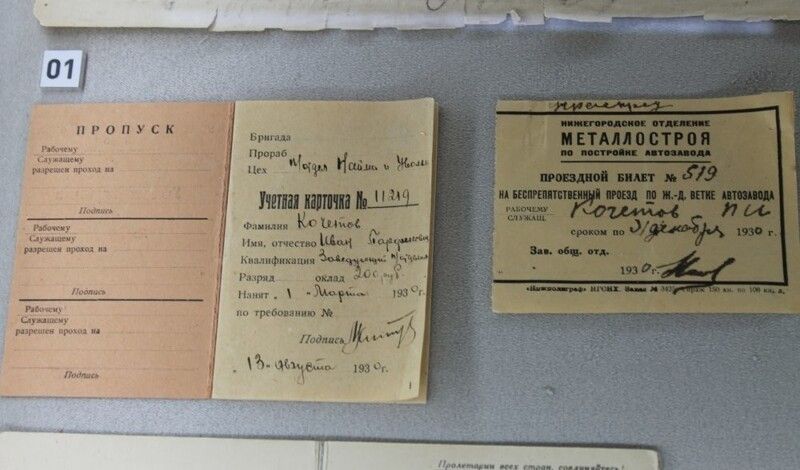 01
ПРОПУСК
Рабочему
Служащему
разрешен проход на
Подпись
Рабочему
Служащему
разрешен проход на
Подпись
Рабочему
Служащему
разрешен проход на
Подпись
Бригада
Прораб
Цех Отдел Найма и
Учетная карточка № 11219
Фамилия Кочетов
Имя, отчество Иван
Квалификация Заведующий
Разряд оклад 200 руб.
Нанят 1 - Марта 1930 г.
по требованию №
Подпись
13 - августа 1930 г.
1
НИЖЕГОРОДСКОЕ ОТДЕЛЕНИЕ
МЕТАЛЛОСТРОЯ
ПО ПОСТРОЙКЕ АВТОЗАВОДА
ПРОЕЗДНОЙ БИЛЕТ № 519
НА БЕСПРЕПЯТСТВЕННЫЙ ПРОЕЗД ПО Ж.-Д. ВЕТКЕ АВТОЗАВОДА
РАБОЧЕМУ
СЛУЖАЩ. Кочетов
сроком по 31 декабря 1930 г.
Зав. общ. отд.
1930 г.
«Нижполиграф» НГОНХ. Заказ № Тираж 150 кн. по 100 кв. д.
Пролетарии всех стран, соединяйтесь!